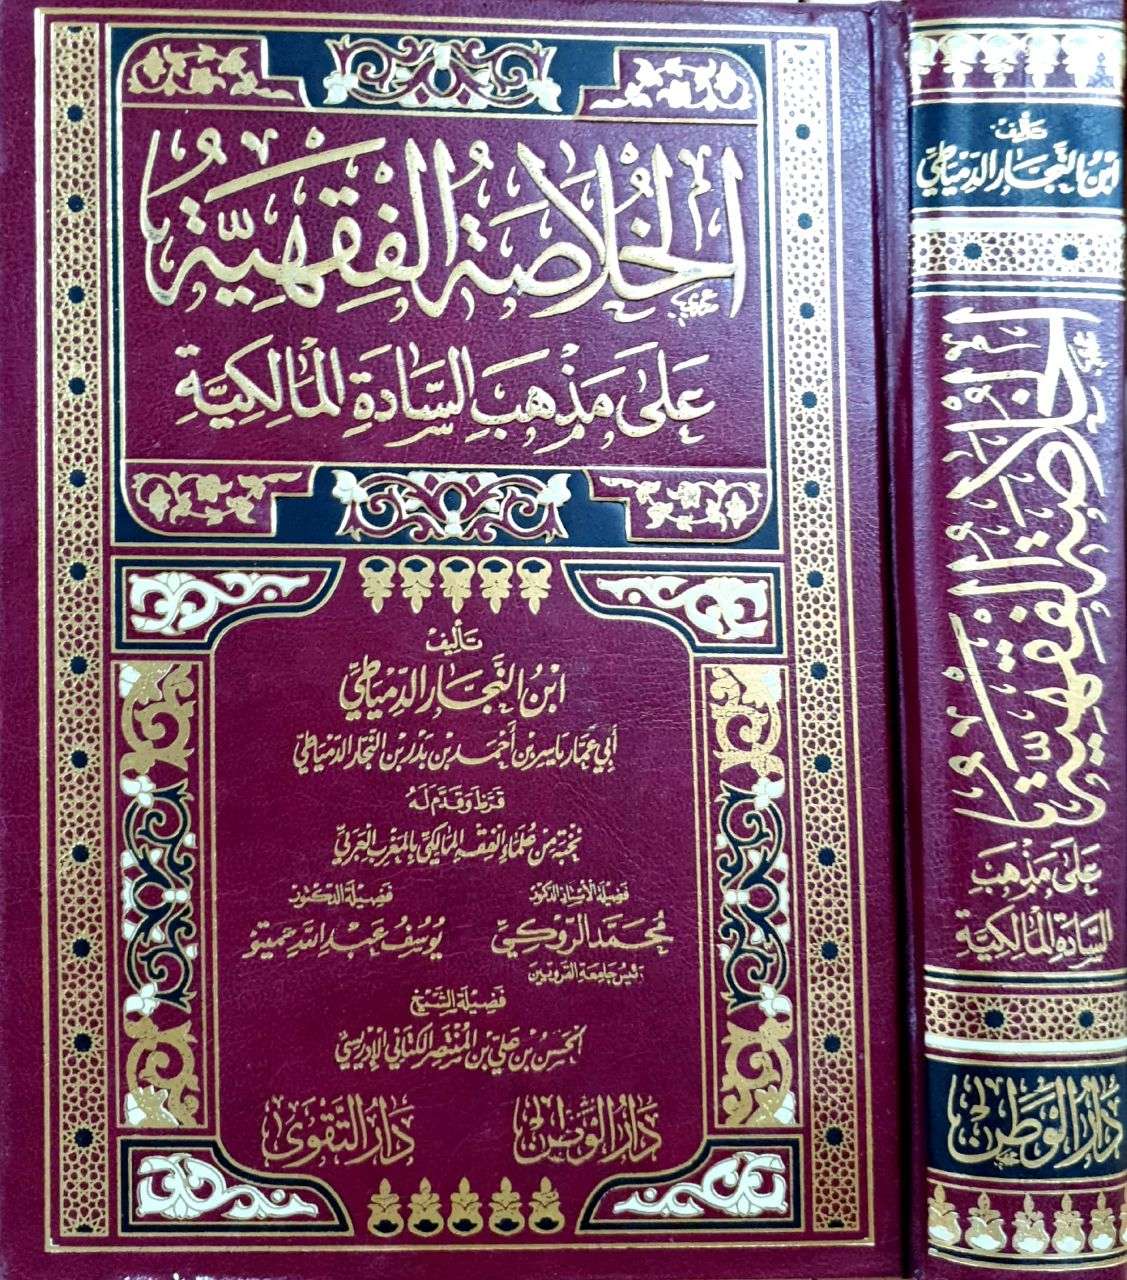 الخُلاصَةُ الفِقْهِيَّةُ
عَلَى مَذْهَبِ السَّادَةِ المَالِكِيَّةِ
تَأليفُ
ابْنُ النَّجَّارِ الدِّمْيَاطِيِّ
أبي عمَّار ياسر بن أَحْمَد بن بَدْر بن النَّجَّار الدِّمْيَاطِيّ
قَرَّظَ وَقَدَّمَ لَهُ
نخبَة مِنْ عُلَمَاءِ الفِقْهِ المَالِكيِّ بِالمَغرِبِ العَرَبيِّ
فَضِيلَة الأستاذ الدكتور
مُحَمَّد الرُّوكِي
رَئيس جَامِعَة القَرَوِيِّين
فَضِيلَة الدكتُور
يُوسُفُ عَبْد اللهِ حميتو
فَضِيلَة الشَّيْخ
الحَسَن بن عَلي بن المُنْتَصِر الكتَّاني الإِدْرِيسيّ
دَارُ الوَطَنِ
دَارُ التَّقْوَى
تأليفُ
ابْنُ النَّجَّارِ الدِّمْيَاطِيِّ
الخُلاصَةُ الفِقْهِيَّةُ
عَلَى مَذْهَبِ
السَّادَةِ المَالِكِيَّةِ
دَارُ الوَطَنِ